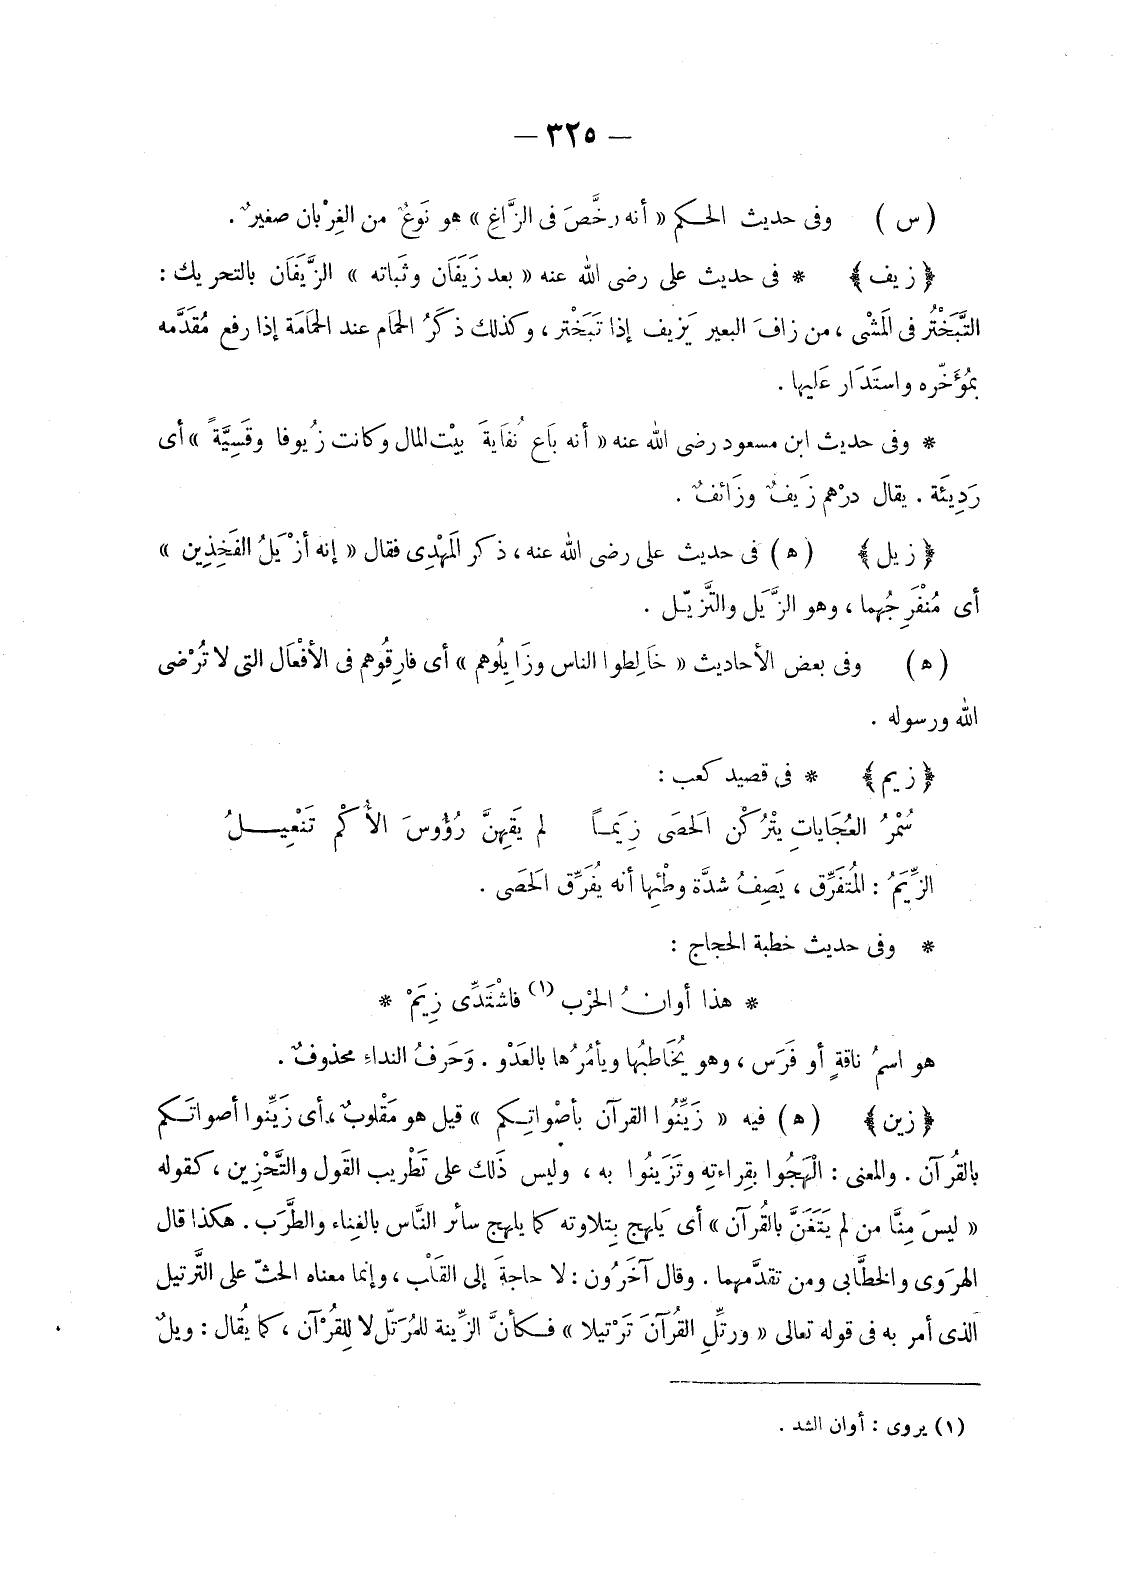 — ٣٢٥ —
( س ) وفى حديث الحكم « أنه رخَّصَ فى الزَّاغِ » هو نَوعٌ من الغِرْبان صغيرٌ .
﴿ زيف ﴾ * فى حديث على رضى الله عنه « بعد زَيَفَان وثَباته » الزَّيَفَان بالتحريك :
التَّبَخْتُر فى المَشْى ، من زافَ البعير يَزِيف إذا تَبَخْتر ، وكذلك ذكَرُ الحمَام عند الحمَامَة إذا رفع مُقَدَّمه
بمُؤَخَّره واستَدَار عَليها .
* وفى حديث ابن مسعود رضى الله عنه « أنه بَاع نُفَايَةَ بيْت المال وكانت زُيوفا وقَسِيَّةً » أى
رَدِيئَة . يقال درْهم زَيفٌ وزَائفٌ .
﴿ زيل ﴾ ( ه ) فى حديث على رضى الله عنه ، ذكر المَهْدِى فقال « إنه أزْيَلُ الفَخِذِين »
أى مُنْفَرِجُهما ، وهو الزَّيَل والتَّزيّل .
( ه ) وفى بعض الأحاديث « خَالِطوا الناس وزَايِلُوهم » أى فارِقُوهم فى الأفْعَال التى لا تُرْضى
الله ورسوله .
﴿ زيم ﴾ * فى قصيد كعب :
سُمْرُ العُجَاياتِ يتْرُكْن الحَصَى زِيَماً لم يَقِهِنَّ رُؤُوسَ الأُكْم تَنْعِيلُ
الزِّيَمُ : المُتفَرِّق ، يَصِفُ شدَّة وطْئِها أنه يُفَرِّق الحَصَى .
* وفى حديث خطبة الحجاج :
* هذا أوانُ الحرْب (١) فاشْتَدِّى زِيَمْ *
هو اسمُ ناقةٍ أو فَرَس ، وهو يُخَاطبُها ويأمُرُها بالعَدْو . وَحَرفُ النداءِ محذوفٌ .
﴿ زين ﴾ ( ه ) فيه « زَيِّنُوا القرآن بأصْواتِكم » قيل هو مَقْلوبٌ ، أى زَيِّنوا أصواتَكم
بالقُرآن . والمعنى : الْهَجُوا بقِراءتِه وتَزَينُوا به ، وليس ذَلك على تَطْريب القَول والتَّحْزِين ، كقوله
« ليسَ مِنَّا من لم يَتَغَنَّ بالقُرآن » أى يَلهج بِتلاوته كما يلهج سائر النَّاس بالغِناء والطَّرَب . هكذا قال
الهرَوى والخطَّابى ومن تقدَّمهما . وقال آخَرُون : لا حاجةَ إلى القَلْب ، وإنما معناه الحثّ على التَّرتيل
الذى أمر به فى قوله تعالى « ورتِّلِ القُرآنَ تَرْتيلا » فكأنَّ الزِّينة للمُرَتّل لا لِلقُرْآن ، كما يُقال : ويلٌ
(١) يروى : أوان الشد .